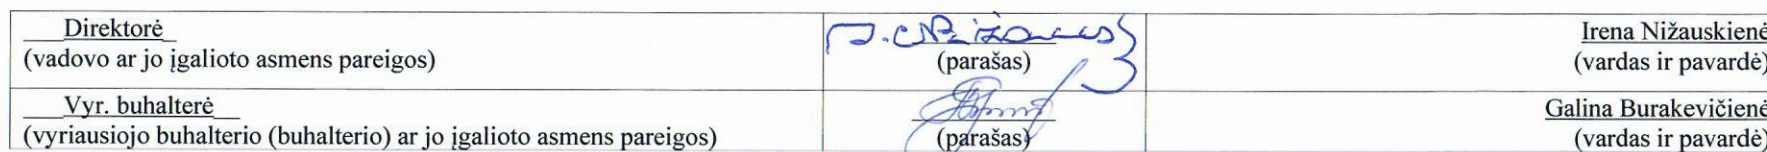 Direktorė
(vadovo ar jo įgalioto asmens pareigos)
(parašas)
Irena Nižauskienė
(vardas ir pavardė)
Vyr. buhalterė
(vyriausiojo buhalterio (buhalterio) ar jo įgalioto asmens pareigos)
(parašas)
Galina Burakevičienė
(vardas ir pavardė)